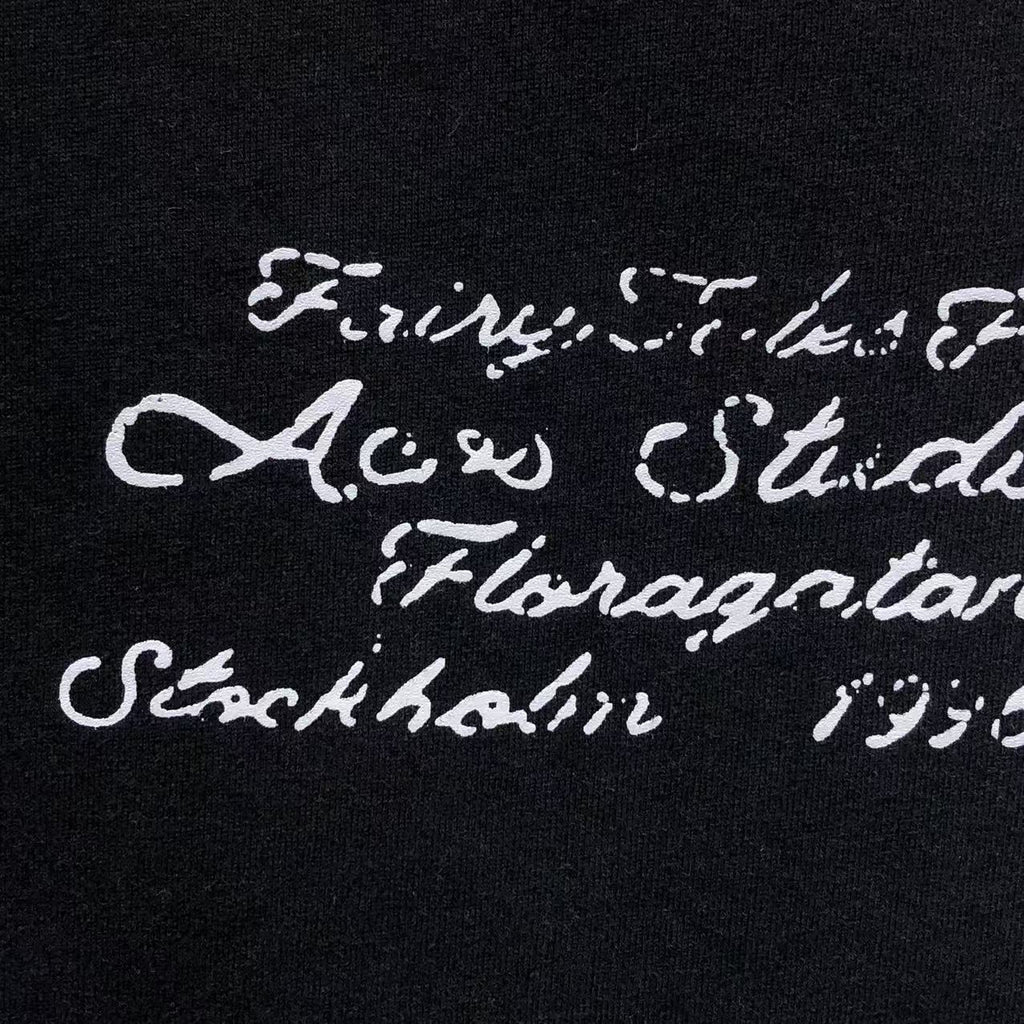 Fairy Tales F
Acne Studi
Floragatan
Stockholm 1996